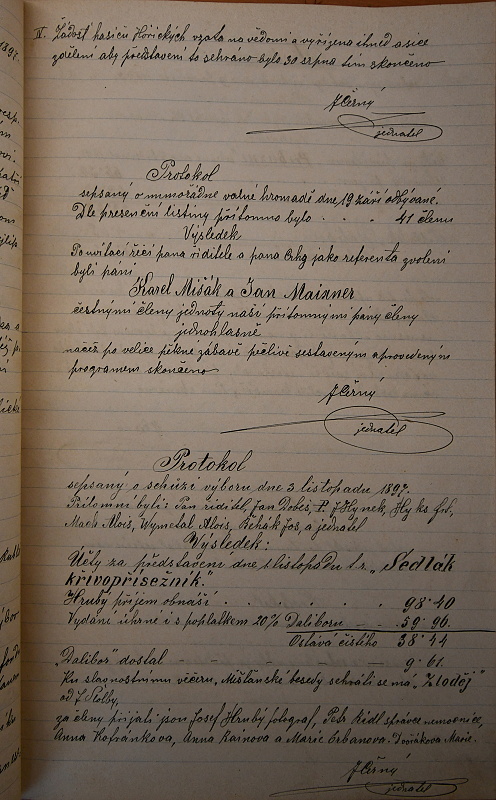 IV. Žádost hasičů Hořických vzata na vědomí a vyřízena ihned a sice
sdělení aby představení to sehráno bylo 30 srpna tím skončeno
J Černý
jednatel
Protokol
sepsaný o mimořádné valné hromadě dne 19 září odbývané.
Dle presenční listiny přítomno bylo . . . 41 členů
Výsledek
Po uvítací řeči pana ředitele a pana jako referenta zvoleni
byli páni
Karel Mišák a Jan Maixner
čestnými členy jednoty naší přítomnými pány členy
jednohlasně
načež po velice pěkné zábavě pečlivě sestaveným a provedeným
programem skončeno
J Černý
jednatel
Protokol
sepsaný o schůzi výboru dne 3. listopadu 1897.
Přítomni byli: Pan ředitel, Jan Dobeš, P. F Hynek, Hyks
Mach Alois, Wymetal Alois, Řehák Jos, a jednatel
Výsledek:
Účty za představení dne 1 listopadu t.r. „Sedlák
křivopřísežník."
Hrubý příjem obnáší . . . . . . 98·40
Vydání úhrne i s poplatkem 20% Daliboru — — 59·96.
Ostává čistého 38·44
„Dalibor" dostal — — — — — 9·61.
Ku slavnostnímu večeru, Měšťanské besedy sehráti se má „Zloděj"
od F. Stolby,
za členy přijati jsou Josef Hrubý fotograf, Petr Ridl správce nemocnice,
Anna Kofránkova, Anna Kainova a Marie Urbanova. Dvořákova Marie.
J Černý
jednatel
1897.